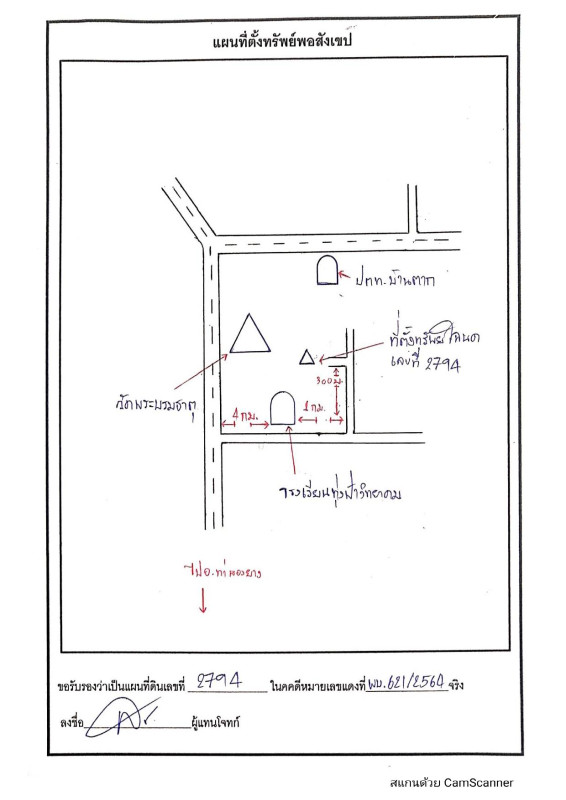 แผนที่ตั้งทรัพย์พอสังเขป
ปตท.บ้านตาก
ที่ตั้งทรัพย์โฉนด
เลขที่ 2794
300ม.
วัดพระบรมธาตุ
4 กม.
1 กม.
โรงเรียนทุ่งฟ้าวิทยาคม
ไปอ.ท่าสองยาง
ขอรับรองว่าเป็นแผนที่ดินเลขที่ 2794 ในคดีหมายเลขแดงที่ ผบ.621/2564 จริง
ลงชื่อ ผู้แทนโจทก์
สแกนด้วย CamScanner